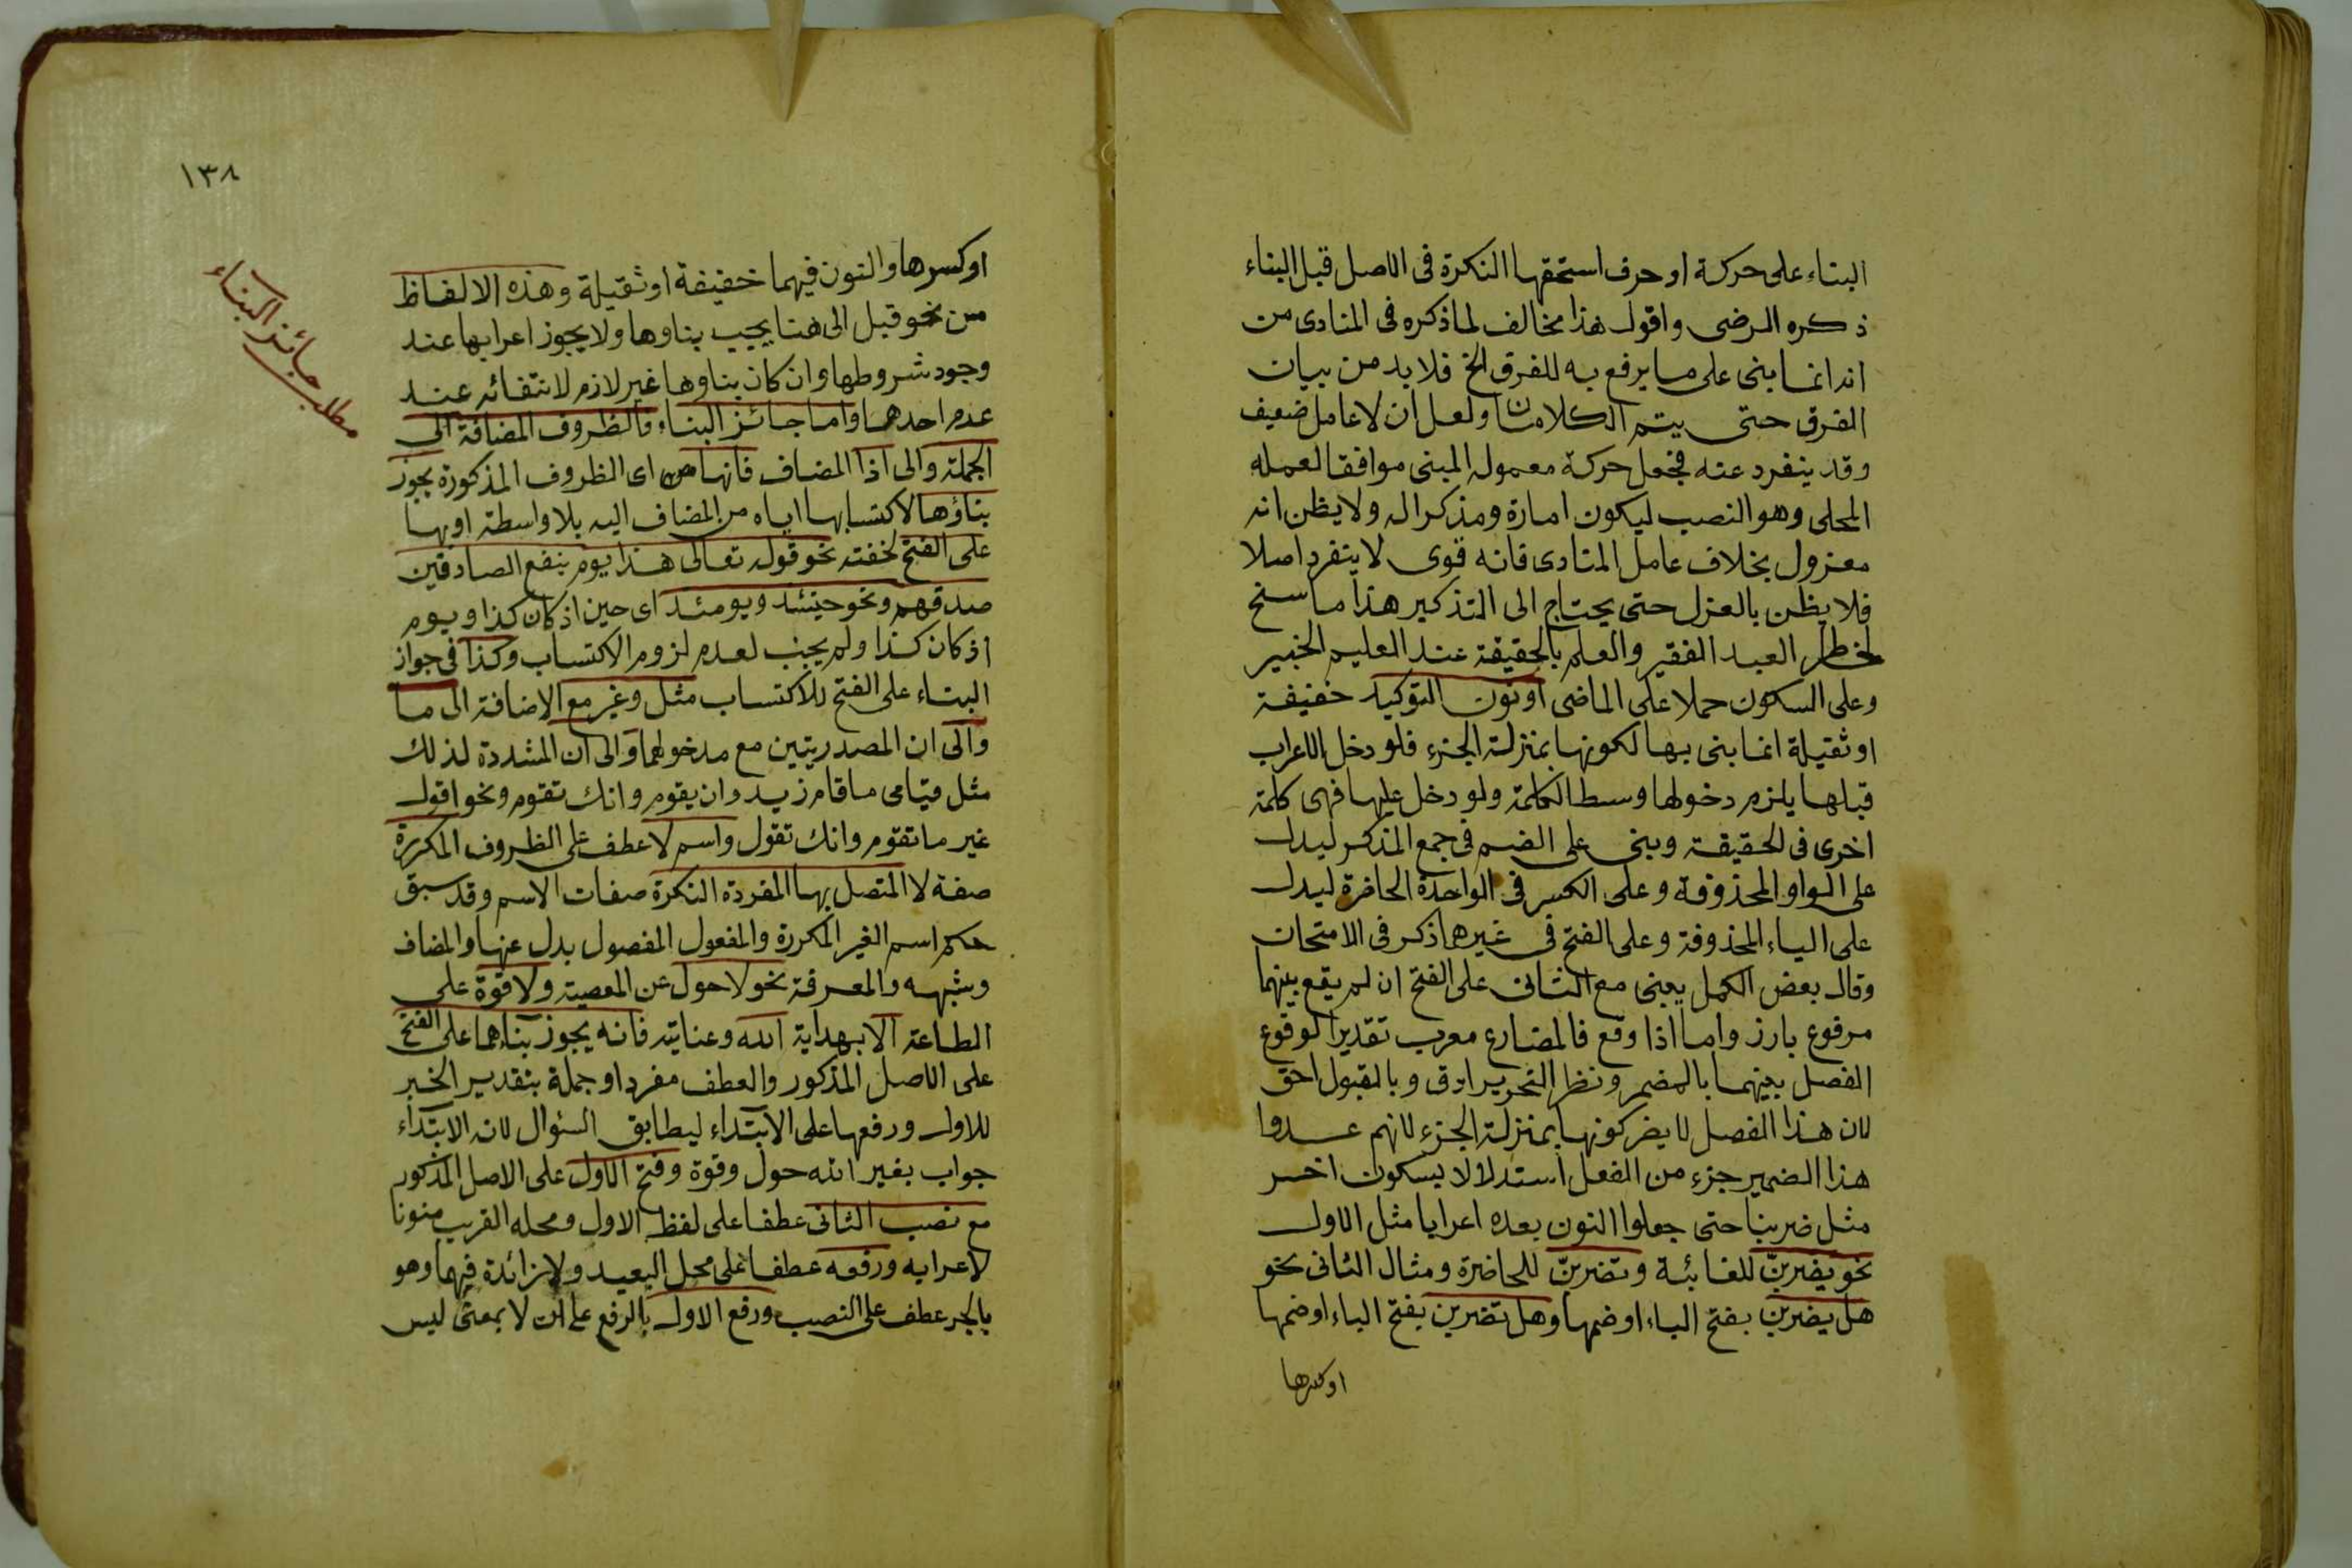 البناء على حركة او حرف استحقها النكرة فى الاصل قبل البناء
ذكره الرضى واقول هذا مخالف لما ذكره فى المنادى من
انه انما بنى على ما يرفع به للفرق الخ فلا بد من بيان
الفرق حتى يتم الكلامان ولعل ان لا عامل ضعيف
وقد ينفرد عنه فجعل حركة معموله المبنى موافقا لعمله
المحلى وهو النصب ليكون امارة ومذكرا له ولا يظن انه
معزول بخلاف عامل المنادى فانه قوى لا ينفرد اصلا
فلا يظن بالعزل حتى يحتاج الى التذكير هذا ما سنح
لخاطر العبد الفقير والعلم بالحقيقة عند العليم الخبير
وعلى السكون حملا على الماضى او نون التوكيد خفيفة
او ثقيلة انما بنى بها لكونها بمنزلة الجزء فلو دخل الاعراب
قبلها يلزم دخولها وسط الكلمة ولو دخل عليها فهى كلمة
اخرى فى الحقيقة وبنى على الضم فى جمع المذكر ليدل
على الواو المحذوفة وعلى الكسر فى الواحدة الحاضرة ليدل
على الياء المحذوفة وعلى الفتح فى غيرها ذكر فى الامتحان
وقال بعض الكمل يبنى مع الثانى على الفتح ان لم يقع بينهما
مرفوع بارز واما اذا وقع فالمضارع معرب تقديرا لوقوع
الفصل بينهما بالمضمر ونظر التحرير ادق وبالقبول احق
لان هذا الفصل لا يضر كونها بمنزلة الجزء لانهم عدوا
هذا الضمير جزء من الفعل استدلالا بسكون اخر
مثل ضربنا حتى جعلوا النون بعده اعرابا مثل الاول
نحو يضربنّ للغائبة وتضربنّ للحاضرة ومثال الثانى نحو
هل يضربن بفتح الباء او ضمها وهل تضربن بفتح الباء او ضمها
او كسرها
١٣٨
او كسرها والنون فيهما خفيفة او ثقيلة وهذه الالفاظ
من نحو قبل الى هنا يجب بناوها ولا يجوز اعرابها عند
وجود شروطها وان كان بناوها غير لازم لانتفائه عند
عدم احدها واما جائز البناء فالظروف المضافة الى
الجملة والى اذا المضاف فانها اى الظروف المذكورة يجوز
بناؤها لاكتسابها اياه من المضاف اليه بلا واسطة او بها
على الفتح لخفته نحو قوله تعالى هذا يوم ينفع الصادقين
صدقهم ونحو حينئذ ويومئذ اى حين اذ كان كذا ويوم
اذ كان كذا ولم يجب لعدم لزوم الاكتساب وكذا فى جواز
البناء على الفتح للاكتساب مثل وغير مع الاضافة الى ما
والى ان المصدريتين مع مدخولهما والى ان المشددة لذلك
مثل قيامى ما قام زيد وان يقوم وانك تقوم ونحو اقول
غير ما تقوم وانك تقول واسم لا عطف على الظروف المكررة
صفة لا المتصل بها المفردة النكرة صفات الاسم وقد سبق
حكم اسم الغير المكررة والمفعول المفصول بدل عنها والمضاف
وشبهه والمعرفة نحو لا حول عن المعصية ولا قوة على
الطاعة الا بهداية الله وعنايته فانه يجوز بناهما على الفتح
على الاصل المذكور والعطف مفرد او جملة بتقدير الخبر
للاول ورفعها على الابتداء ليطابق السئوال لانه الابتداء
جواب بغير الله حول وقوة وفتح الاول على الاصل المذكور
مع نصب الثانى عطفا على لفظ الاول ومحله القريب منونا
لاعرابه ورفعه عطفا على محل البعيد ولا زائدة فيهما وهو
بالجر عطف على النصب ورفع الاول بالرفع على ان لا بمعنى ليس
مطلب جائز البناء